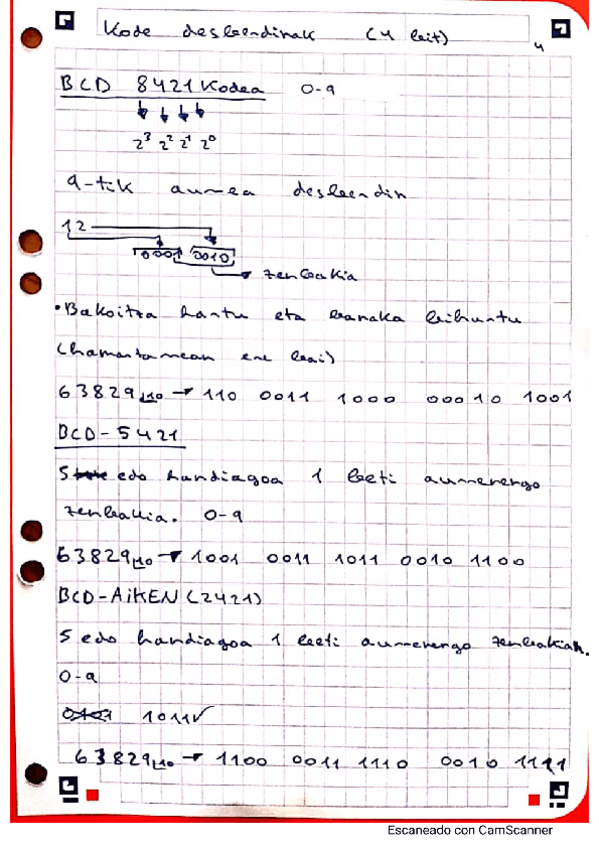 Kode desberdinak (4 bit)
4
BCD 8421 Kodea 0-9
2³ 2² 2¹ 2⁰
9-tik aurrera desberdin
12
0001 0010
zenbakia
• Bakoitza hartu eta banaka bihurtu
(hamartarrean ere bai)
63829₁₀ → 110 0011 1000 00010 1001
BCD-5421
5 edo handiagoa 1 beti aurrerengo
zenbakia. 0-9
63829₁₀ → 1001 0011 1011 0010 1100
BCD-AiKEN (2421)
5 edo handiagoa 1 beti aurrerengo zenbakian.
0-9
1011✓
63829₁₀ → 1100 0011 1110 0010 1111
Escaneado con CamScanner